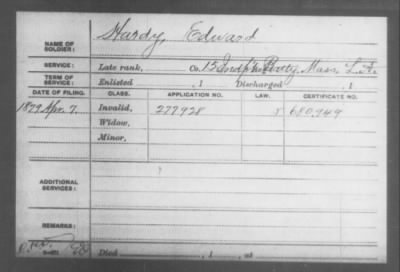 Hardy, Edward
NAME OF SOLDIER:
SERVICE: Late rank, Co. 15 Ind'p't Batty. Mass. L't
TERM OF SERVICE: Enlisted , 1 Discharged , 1
DATE OF FILING. CLASS. APPLICATION NO. LAW. CERTIFICATE NO.
1879 Apr. 7. Invalid, 277928 680,949
Widow,
Minor,
ADDITIONAL SERVICES:
REMARKS:
Died , 1 , at